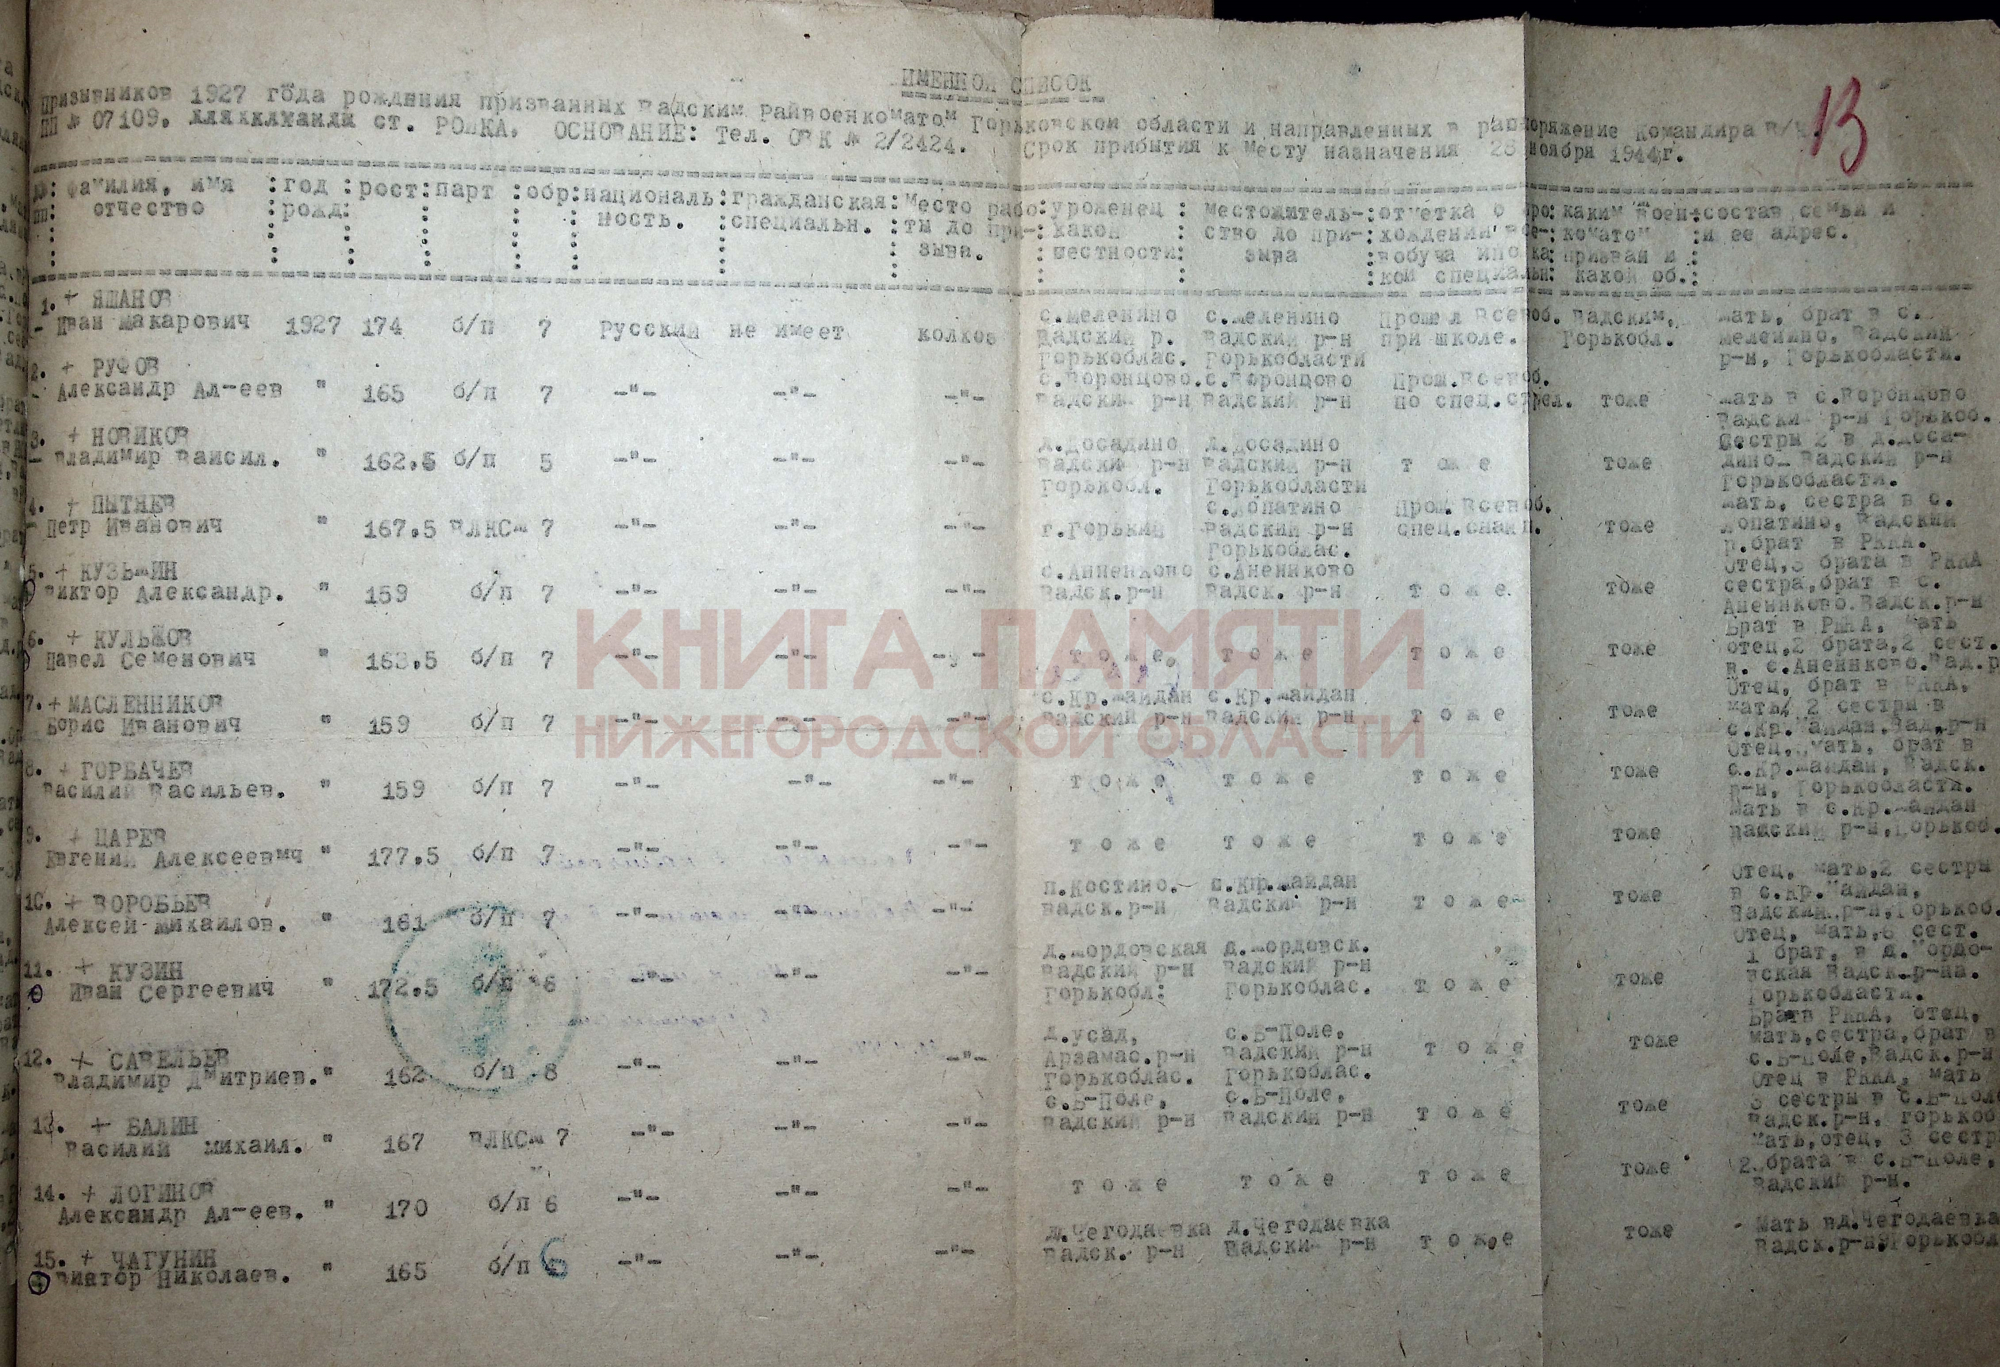 13
ИМЕННОЙ СПИСОК
Призывников 1927 года рождения призванных Вадским Райвоенкоматом Горьковской области и направленных в распоряжение Командира в/ч
ПП № 07109, ст. РОЙКА. ОСНОВАНИЕ: Тел. ОВК № 2/2424. Срок прибытия к месту назначения 25 ноября 1944г.
пп: фамилия, имя :год :рост:парт :обр:националь:гражданская:Место рабо:уроженец : местожитель-:отметка о про:каким Воен-:состав семьи и
отчество :рожд: ность. :специальн. :ты до при-: какой : ство до при-:хождении все-:коматом :и ее адрес.
зыва. :местности: зыва :вобуча и по ка:призван и :
кой специальн: какой об.:
1. + ЯШАНОВ
Иван Макарович 1927 174 б/п 7 Русский не имеет колхоз
с.Меленино с.Меленино Прошел Всевоб. Вадским, мать, брат в с.
Вадский р. Вадский р-н при школе. Горькобл. Меленино, Вадский
Горькоблас. Горькобласти р-н, Горькобласти.
2. + РУФОВ
Александр Ал-еев " 165 б/п 7 -"- -"- -"-
с.Воронцово.с.Воронцово Прош.Всевоб.
Вадский р-н Вадский р-н по спец.стрел. тоже мать в с.Воронцово
Вадский р-н Горькоб.
3. + НОВИКОВ
Владимир Ваисил. " 162,5 б/п 5 -"- -"- -"-
д.Досадино д.Досадино Сестры 2 в д.Доса-
Вадский р-н Вадский р-н т о ж е тоже дино Вадский р-н
Горькобл. Горькобласти Горькобласти.
4. + ПЫТЯЕВ
Петр Иванович " 167,5 ВЛКСМ 7 -"- -"- -"-
с.Лопатино Прош.Всевоб. мать, сестра в с.
г.Горький Вадский р-н спец.снайп. тоже Лопатино, Вадский
Горькоблас. р.брат в РККА.
5. + КУЗЬМИН
Виктор Александр. " 159 б/п 7 -"- -"- -"-
с.Анненково с.Анениково Отец,3 брата в РККА
Вадск.р-н Вадск. р-н т о ж е тоже сестра,брат в с.
Анениково.Вадск.р-н
6. + КУЛЬШОВ
Павел Семенович " 163,5 б/п 7 -"- -"- -у-
т о ж е. т о ж е т о ж е тоже
Брат в РККА, мать
отец,2 брата,2 сест.
в. с.Анениково.Вад.р
7.+ МАСЛЕННИКОВ
Борис Иванович " 159 б/п 7 -"- -"- -"-
с.Кр.Майдан с.Кр.Майдан Отец, брат в РККА,
Вадский р-н Вадский р-н т о ж е тоже мать, 2 сестры в
с.Кр.Майдан,Вад,р-н
8. + ГОРБАЧЕВ
Василий Васильев. " 159 б/п 7 -"- -"- -"-
т о ж е т о ж е т о ж е тоже
Отец, мать, брат в
с.Кр.Майдан, Вадск.
р-н, Горькобласти.
9. + ЦАРЕВ
Евгений Алексеевич " 177,5 б/п 7 -"- -"- -"-
т о ж е т о ж е т о ж е тоже
Мать в с.Кр.Майдан
Вадский р-н,Горькоб.
10. + ВОРОБЬЕВ
Алексей Михаилов. " 161 б/п 7 -"- -"- -"-
п.Костино. с.Кр.Майдан Отец, мать,2 сестры
Вадск.р-н Вадский р-н т о ж е тоже в с.Кр.Майдан,
Вадский.р-н,Горькоб.
11. + КУЗИН
Иван Сергеевич " 172,5 б/п 6 -"- -"- -"-
д.Мордовская д.Мордовск. Отец, мать,6 сест.
Вадский р-н Вадский р-н 1 брат, в д. Мордо-
Горькобл: Горькоблас. т о ж е тоже вская Вадск.р-на.
Горькобласти.
12. + САВЕЛЬЕВ
Владимир Дмитриев." 162 б/п 8 -"- -"- -"-
д.Усад, с.Б-Поле, Брат в РККА, отец,
Арзамас.р-н Вадский р-н т о ж е тоже мать,сестра,брат в
Горькоблас. Горькоблас. с.Б-Поле,Вадск.р-н
13. + БАЛИН
Василий Михаил. " 167 ВЛКСМ 7 -"- -"- -"-
с.Б-Поле, с.Б-Поле, Отец в РККА, мать
Вадский р-н Вадский р-н т о ж е тоже 3 сестры в с.Б-Поле
Вадск.р-н, Горькоб
14. + ЛОГИНОВ
Александр Ал-еев. " 170 б/п 6 -"- -"- -"-
т о ж е т о ж е т о ж е тоже
мать,отец, 3 сестр
2 брата в с.Б-Поле,
Вадский р-н.
15. + ЧАГУНИН
Виктор Николаев. " 165 б/п 6 -"- -"- -"-
д.Чегодаевка д.Чегодаевка Мать в д.Чегодаевка
Вадск. р-н Вадский р-н т о ж е тоже Вадск.р-н,Горькобл
КНИГА ПАМЯТИ
НИЖЕГОРОДСКОЙ ОБЛАСТИ